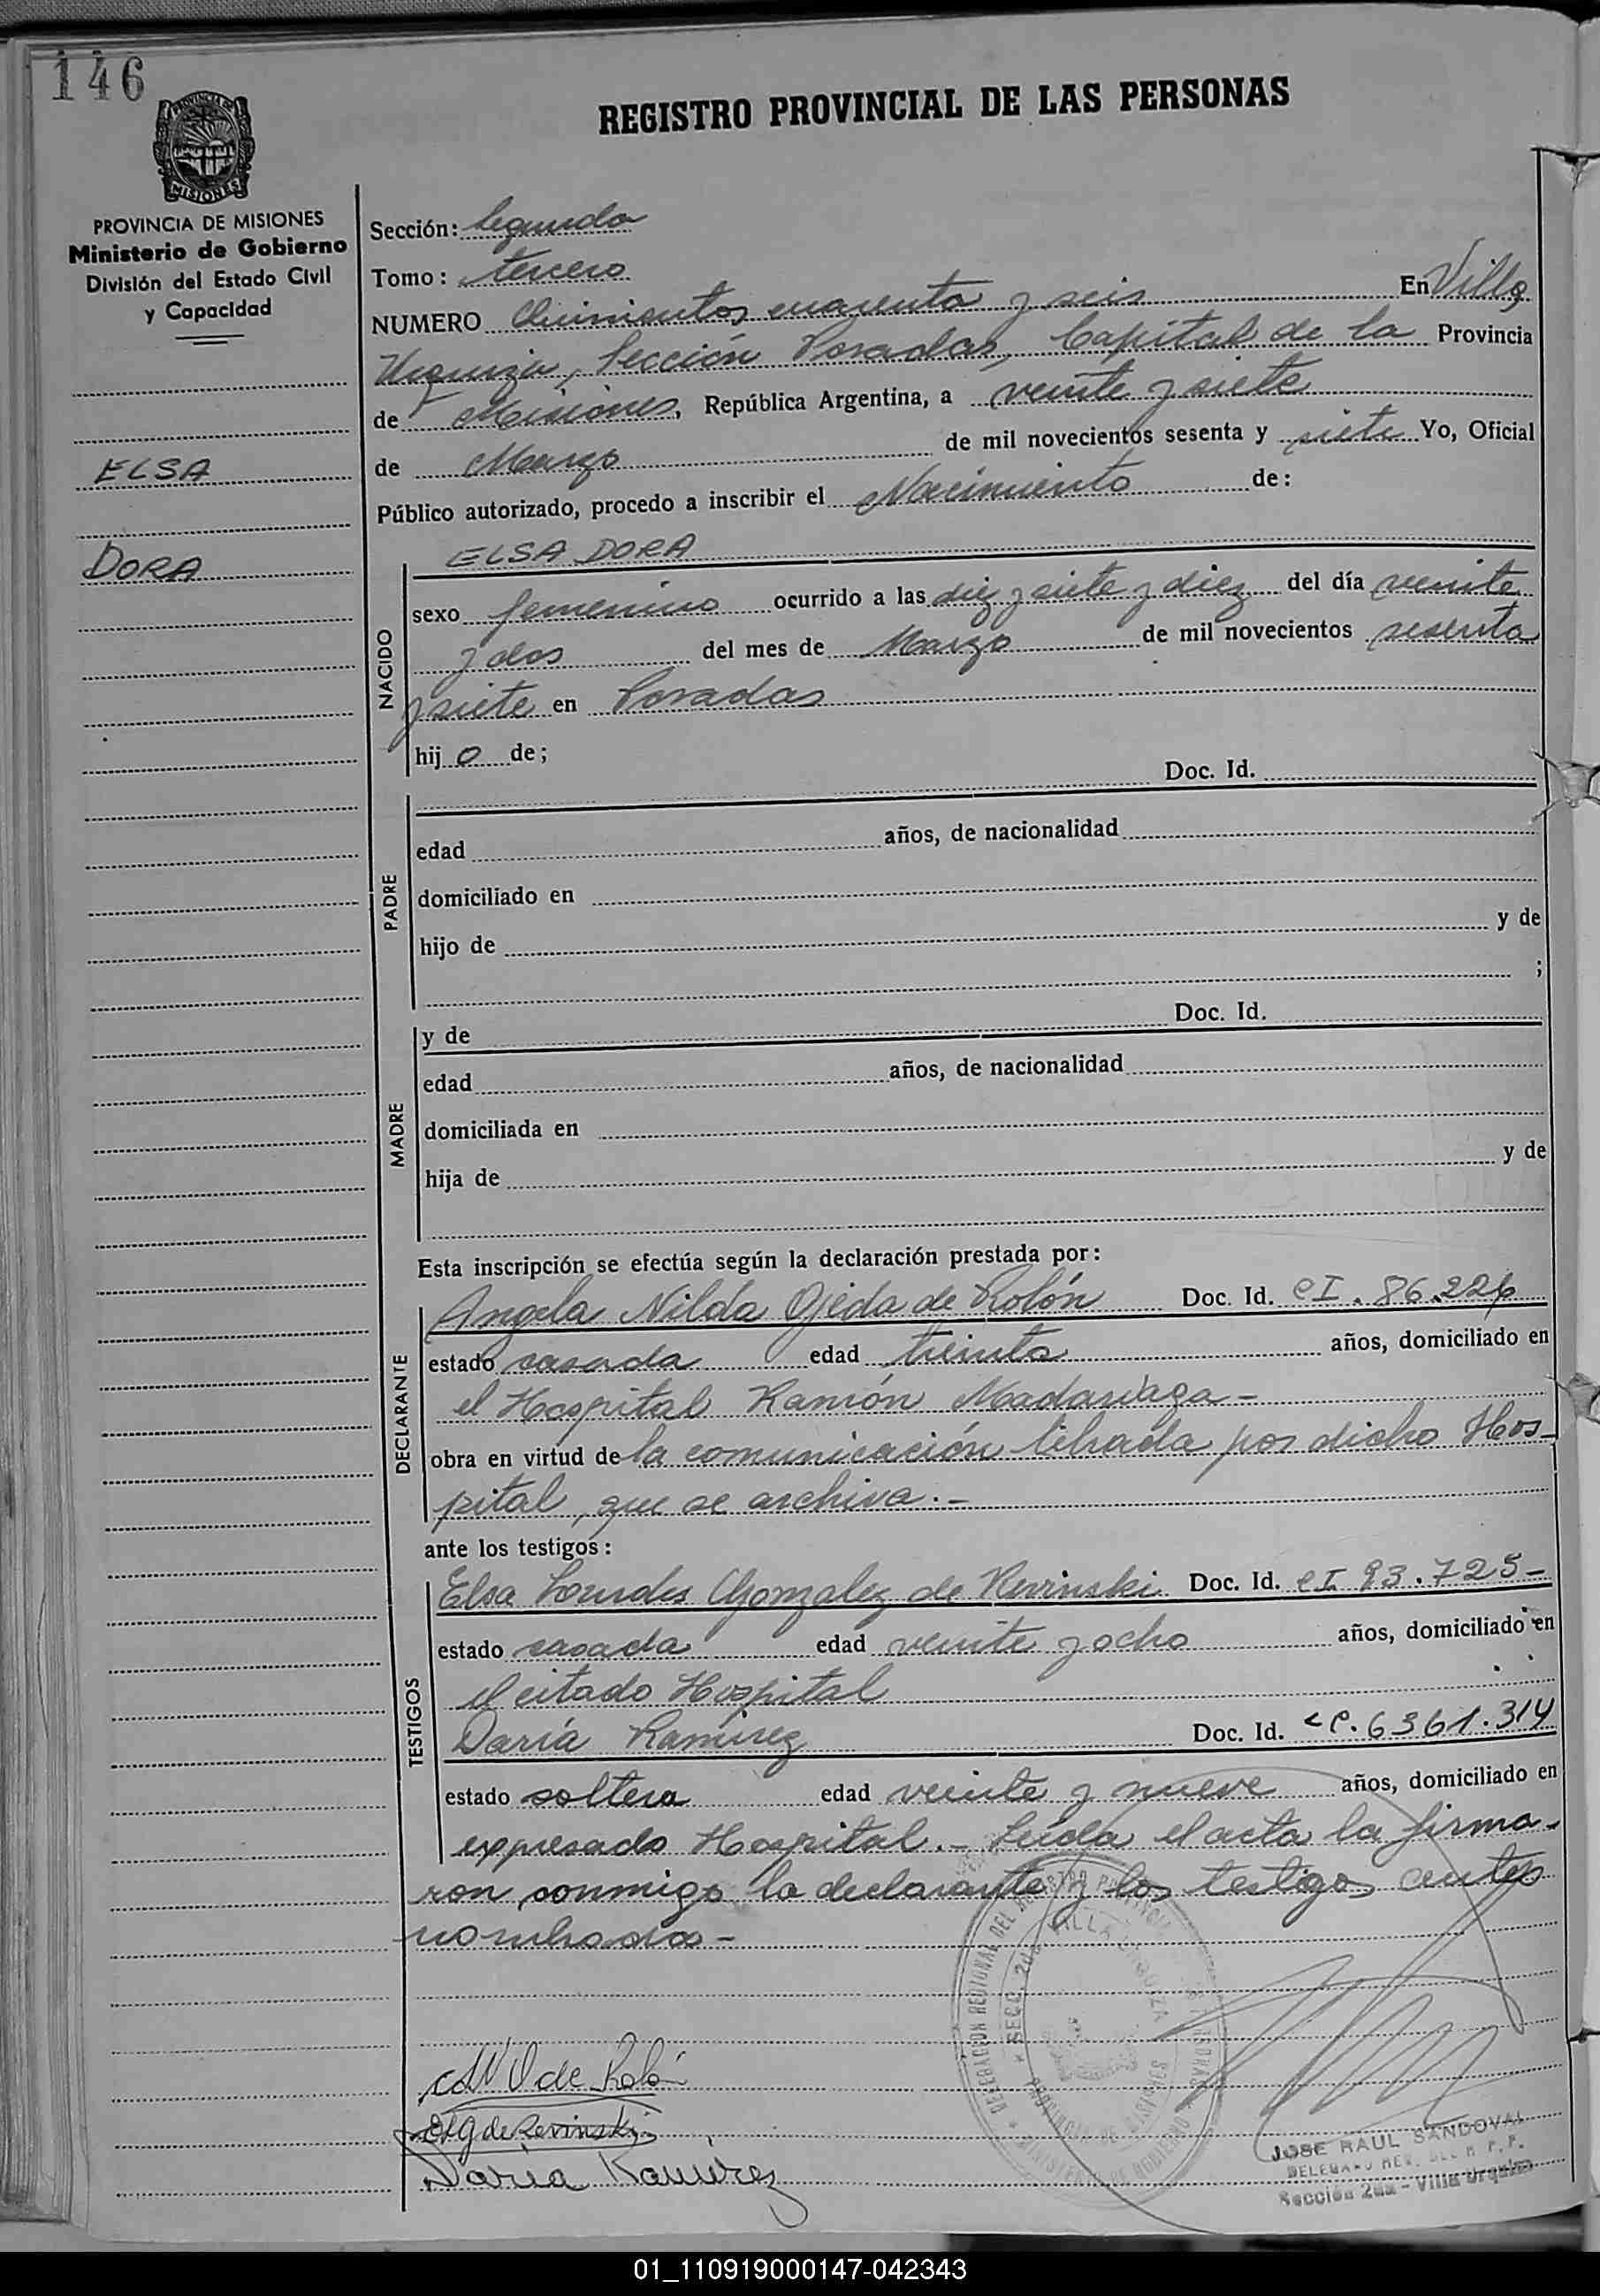 146
REGISTRO PROVINCIAL DE LAS PERSONAS
PROVINCIA DE MISIONES
MISIONES
PROVINCIA DE MISIONES
Ministerio de Gobierno
División del Estado Civil
y Capacidad
ELSA
DORA
Sección: Segunda
Tomo: tercero
NUMERO Quinientos cuarenta y seis En Villa
Urquiza, Sección Posadas, Capital de la Provincia
de Misiones, República Argentina, a veinte y siete
de Marzo de mil novecientos sesenta y siete Yo, Oficial
Público autorizado, procedo a inscribir el Nacimiento de:
ELSA DORA
NACIDO
sexo femenino ocurrido a las diez y siete y diez del día veinte
y dos del mes de Marzo de mil novecientos sesenta
y siete en Posadas
hij o de;
Doc. Id.
PADRE
edad años, de nacionalidad
domiciliado en
hijo de y de
;
MADRE
y de Doc. Id.
edad años, de nacionalidad
domiciliada en
hija de y de
Esta inscripción se efectúa según la declaración prestada por:
DECLARANTE
Angela Nilda Ojeda de Rolón Doc. Id. CI. 86.226
estado casada edad treinta años, domiciliado en
el Hospital Ramón Madariaga-
obra en virtud de la comunicación librada por dicho Hos-
pital, que se archiva.-
ante los testigos:
TESTIGOS
Elsa Lourdes Gonzalez de Revinski Doc. Id. CI 93.725-
estado casada edad veinte y ocho años, domiciliado en
el citado Hospital
Daría Ramirez Doc. Id. LC. 6361.314
estado soltera edad veinte y nueve años, domiciliado en
expresado Hospital.- Leída el acta la firma-
ron conmigo la declarante y los testigos antes
nombrados-
de Rolón
ELG de Revinski
Daría Ramirez
SECC. 2da VILLA URQUIZA
PROVINCIA DE MISIONES
MINISTERIO DE GOBIERNO
JOSE RAUL SANDOVAL
Sección 2da - Villa Urquiza
01_110919000147-042343